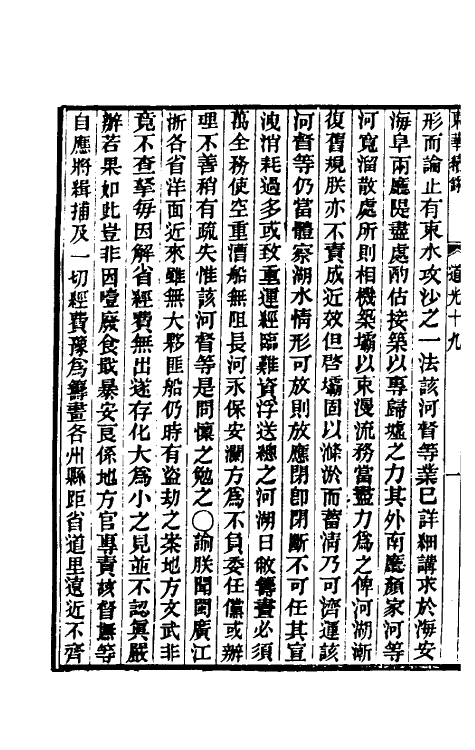 東華續錄　道光十九　一
形而論止有束水攻沙之一法該河督等業已詳細講求於海安
海阜兩廳隄盡處酌估接築以專歸墟之力其外南廳顏家河等
河寬溜散處所則相機築壩以束漫流務當盡力為之俾河湖漸
復舊規朕亦不責成近效但啓壩固以滌淤而蓄淸乃可濟運該
河督等仍當體察湖水情形可放則放應閉卽閉斷不可任其宣
洩消耗過多或致重運經臨難資浮送總之河湖日敝籌畫必須
萬全務使空重漕船無阻長河永保安瀾方為不負委任儻或辦
理不善稍有疏失惟該河督等是問懍之勉之○諭朕聞閩廣江
浙各省洋面近來雖無大夥匪船仍時有盜劫之案地方文武非
竟不查拏每因解省經費無出遂存化大為小之見並不認眞嚴
辦若果如此豈非因噎廢食戢暴安良係地方官專責該督撫等
自應將緝捕及一切經費豫為籌畫各州縣距省道里遠近不齊